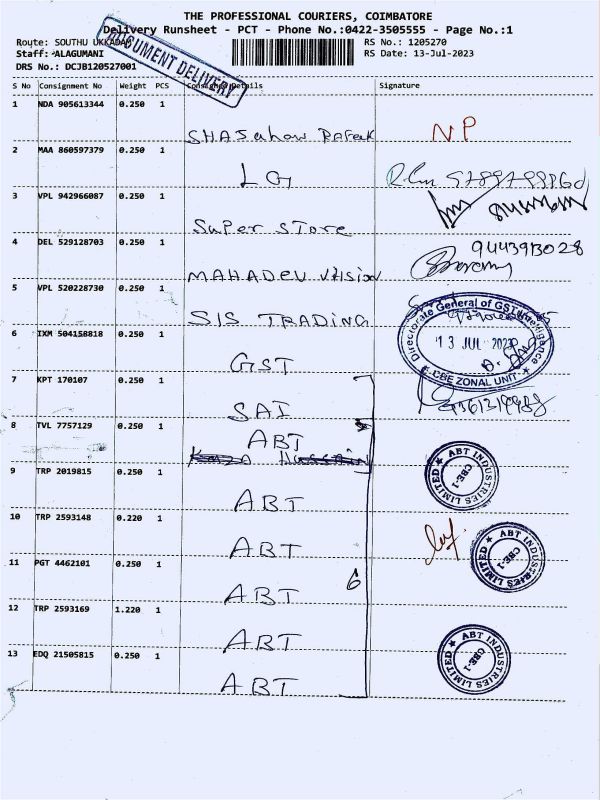 THE PROFESSIONAL COURIERS, COIMBATORE
Delivery Runsheet - PCT - Phone No.:0422-3505555 - Page No.:1
Route: SOUTHU UKKADAM
RS No.: 1205270
Staff: ALAGUMANI
RS Date: 13-Jul-2023
DRS No.: DCJB120527001
DOCUMENT DELIVERY
S No Consignment No Weight PCS Consignee Details Signature
1 NDA 905613344 0.250 1
NP
2 MAA 860597379 0.250 1
LG
3 VPL 942966087 0.250 1
Super Store
4 DEL 529128703 0.250 1
9443913028
MAHADEV Vision
5 VPL 520228730 0.250 1
SIS TRADING
Directorate General of GST Intelligence
13 JUL 2023
CBE ZONAL UNIT
6 IXM 504158818 0.250 1
GST
7 KPT 170107 0.250 1
SAI
8 TVL 7757129 0.250 1
ABT
9 TRP 2019815 0.250 1
ABT
ABT INDUSTRIES LIMITED
CBE-1
10 TRP 2593148 0.220 1
ABT
ABT INDUSTRIES LIMITED
CBE-1
11 PGT 4462101 0.250 1
6
ABT
12 TRP 2593169 1.220 1
ABT
13 EDQ 21505815 0.250 1
ABT
ABT INDUSTRIES LIMITED
CBE-1